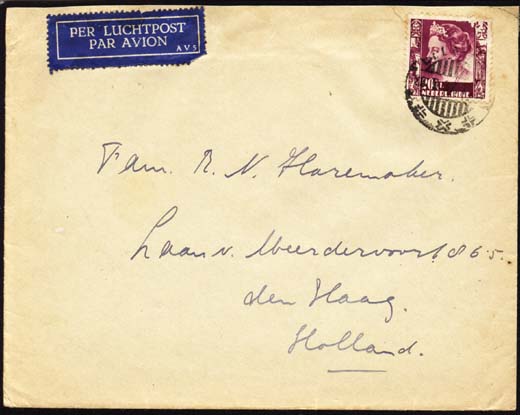 PER LUCHTPOST
PAR AVION
AVS
20
NEDERL. INDIE
Fam. R. N. Haremaker.
Laan v. Meerdervoort 865.
den Haag.
Holland.